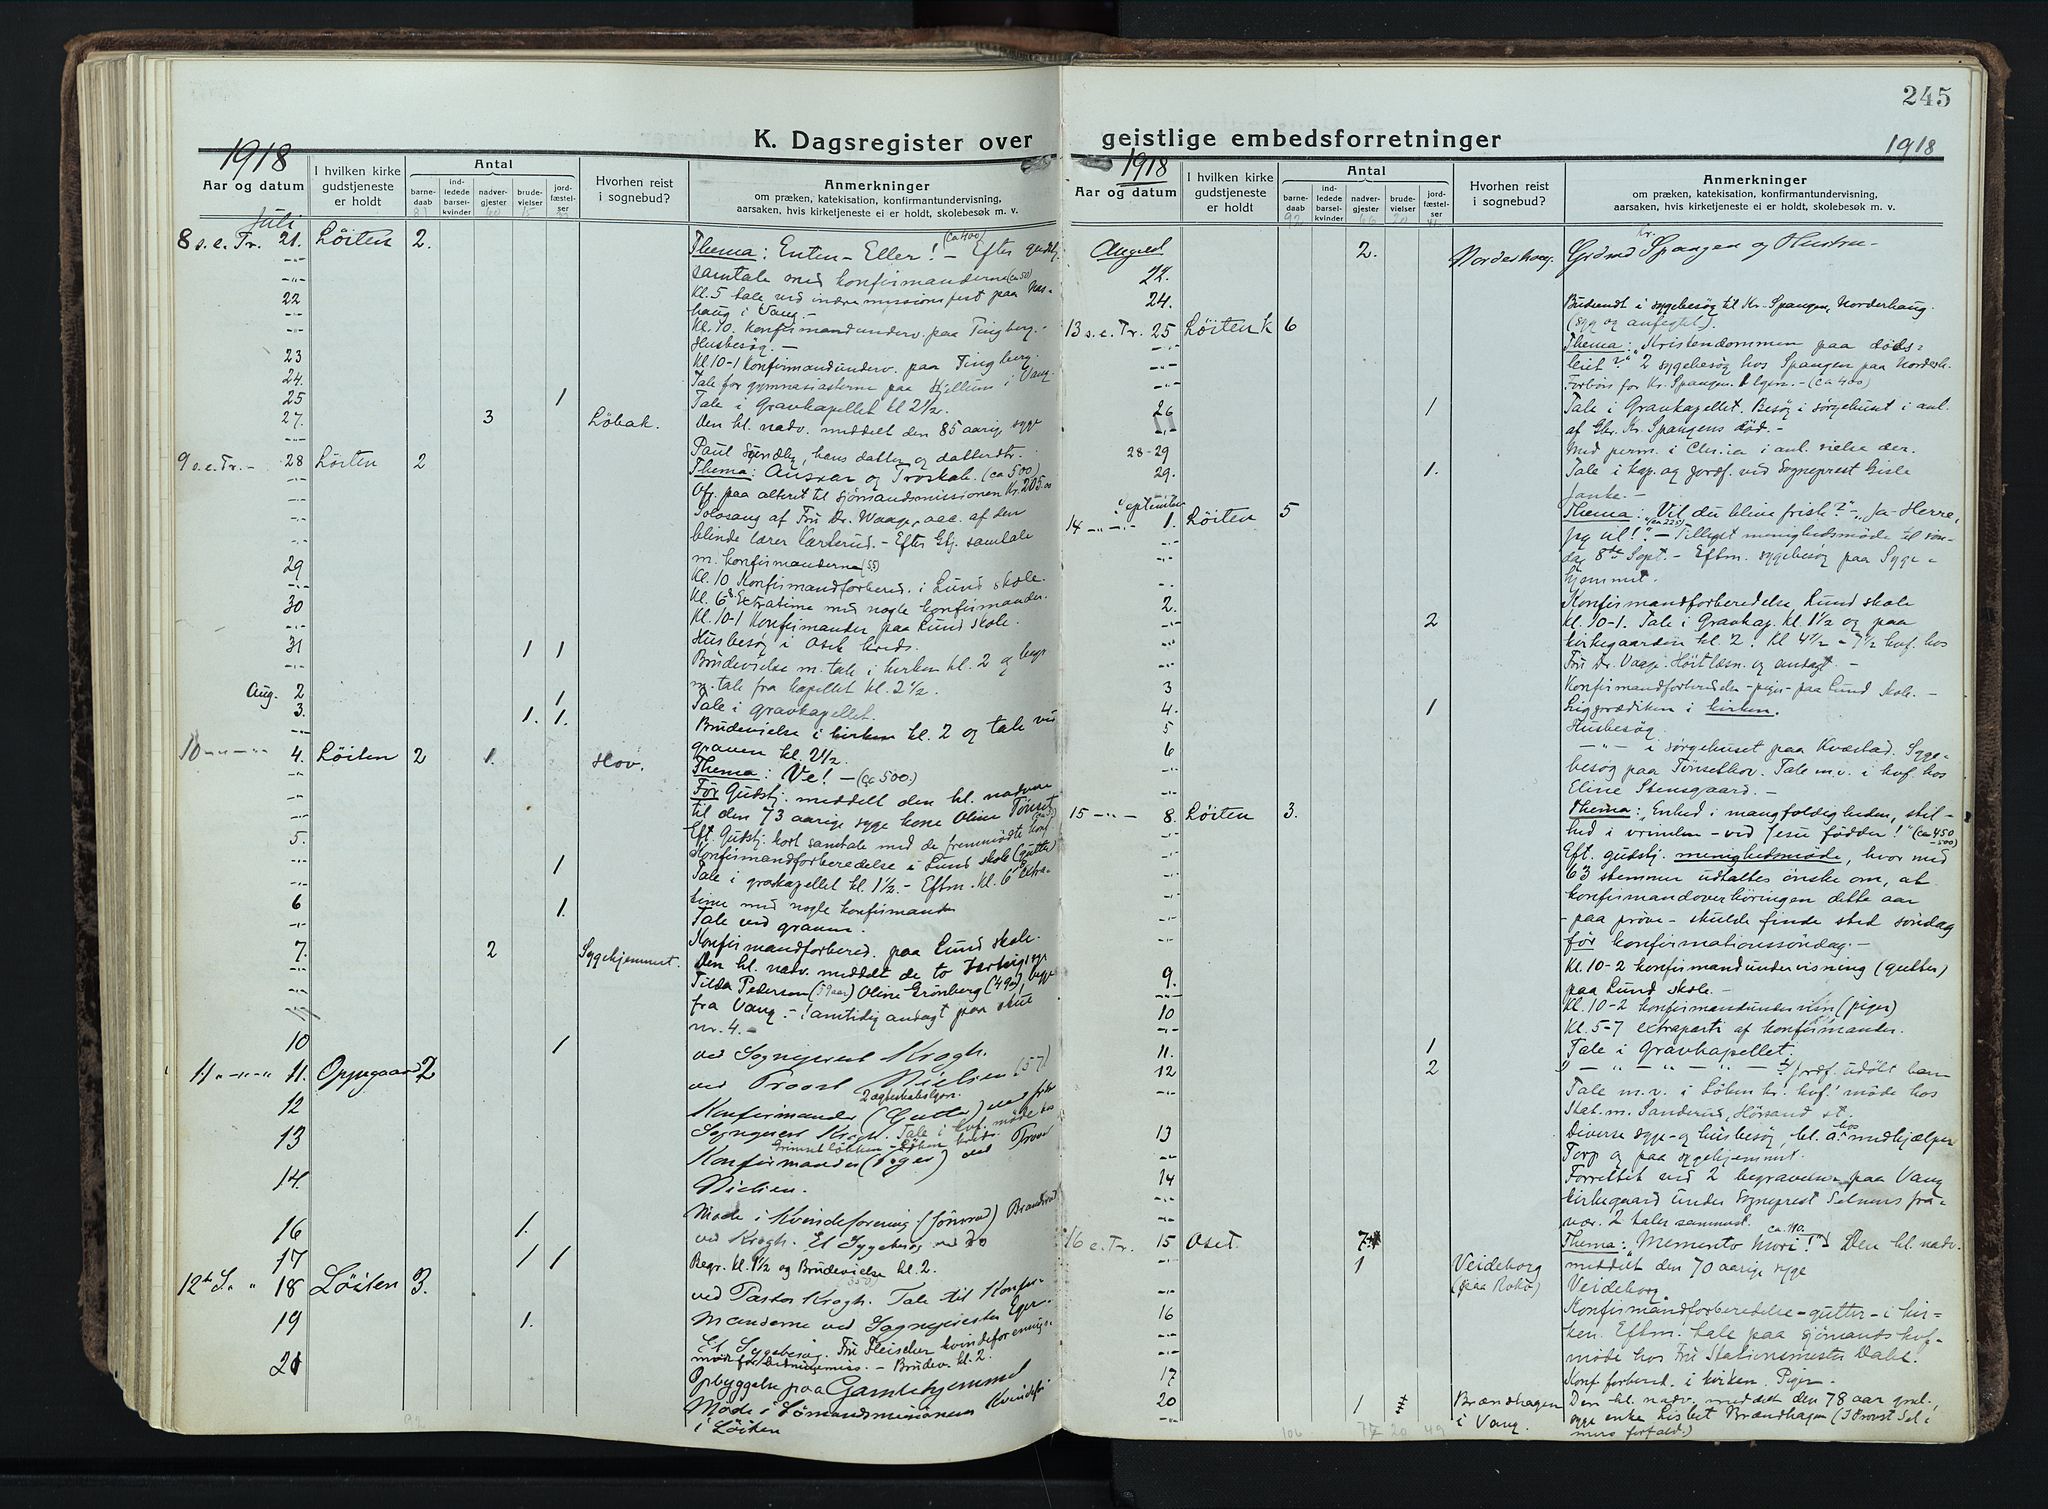 245
K. Dagsregister over
geistlige embedsforretninger
1918
1918
1918
Aar og datum
I hvilken kirke gudstjeneste er holdt
Antal
barne-daab
ind-ledede barsel-kvinder
nadver-gjester
brude-vielser
jord-fæstel-ser
Hvorhen reist i sognebud?
Anmerkninger
om præken, katekisation, konfirmantundervisning,
aarsaken, hvis kirketjeneste ei er holdt, skolebesøk m. v.
Juli
8 s. e. Tr. 21. Löiten 2. Thema: Enten-Eller! (ca 400) - Efter gudstj.
samtale med konfirmanderne (ca 50)
22 Kl. 5 tale ved indremissionsfest paa
haug i Vang.-
Kl. 10. Konfirmandunderv. paa Tingberg.-
23 Husbesøg.-
Kl 10-1 Konfirmandunderv. paa Tingberg.
24. Tale for gymnasiasterne paa Hjellum i Vang.
25 1 Tale i Gravkapellet kl 2½.
27. 3 Løbak. Den hl. nadv. meddelt den 85 aarig syge
Paul Sundby, hans datter og datterdtr.
9 s. e. Tr. - 28 Löiten 2 Thema: Ansvar og Troskab. (ca 500)
Ofr. paa alteret til sjömandsmissionen Kr. 205.00
Solosang af Fru Dr. Waage, acc. af den
blinde lærer Karterud. - Efter Gtj. samtale
29 m. konfirmanderne (55)
Kl. 10 Konfirmandforbered. i Lund skole.
Kl. 6 Extratime med nogle konfirmander.
30 Kl. 10-1 Konfirmander paa Lund skole.
Husbesøg i Oset kreds.
31 1 1 Brudevielse m. tale i kirken kl. 2 og begr
m. tale fra kapellet kl. 2½.
Aug. 2 1 Tale i gravkapellet.
3. 1. 1. Brudevielse i kirken kl. 2 og tale ved
graven kl. 2½.
10 4. Löiten 2 1. Hov. Thema: Ve! - (ca 500.)
Før Gudstj. meddelt den hl. nadvere
til den 73 aarige syge kone Oline Tønset
5. Eft. Gudstj. kort samtale med de fremmødte konf.
Konfirmandforberedelse i Lund skole (gutter)
1 Tale i gravkapellet kl. 1½. - Eftm. Kl. 6 Extra-
time med nogle konfirmander
6 1. Tale ved graven.
Konfirmandforbered. paa Lund skole.
7. 2 Sygehjemmet. Den hl. nadv. meddelt de to
Tilda Pedersen (59 aar) Oline Grönberg (49 a), begge
fra Vang. - Samtidig andagt paa stue
nr. 4.-
10 1 ved Sogneprest Krogh.
11 11. Oppegaard 2 ved Provst Nielsen (57)
12 Konfirmander (Gutter) ved
13 Sogneprest Krogh. Tale i kvf. møde hos
Konfirmander (Piger) ved Provst
14. Nielsen.
Møde i Kvindeforening (Jönsrud)
16 1. ved Krogh. Et Sygebesøg ved do
17 1 1 Begr. kl. 1½ og Brudevielse kl. 2.
12te S. " 18 Löiten 3. ved Pastor Krogh. Tale til Konfir-
19 1. manderne ved Sogneprest
Et Sygebesøg. Fru Fleischer kvindeforenings-
møde for - Brudev. kl. 2.
21 Opbyggelse paa Gamlehjemmet
Møde i Sömandsmissionens Kvindefor
i Löiten
August
22. 2. Norderhaug. Grdmd Kr. Spangen og Hustru-
24. Budsendt i sygebesøg til Kr. Spangen, Norderhaug.
(syg og anfegtet).
13 s. e. Tr. 25 Löiten k 6 Thema: "Kristendommen paa døds-
leiet?" 2 sygebesøg hos Spangen paa Norderh.
Forbøn for Kr. Spangen. (ca 400)
26 1 Tale i Gravkapellet. Besøg i sørgehuset i anl.
af Gbr. Kr. Spangens død.-
28-29 Med perm. i Chr.ia i anl.
29. 1. Tale i kap. og jordf. ved Sogneprest Gisle
Janke.-
September
14 1. Löiten 5 Thema: "Vil du blive frisk?" - "Ja-Herre,
jeg vil!" (ca 225) - Tillyst menighedsmøde til søn-
dag 8de Sept. - Eftm. sygebesøg paa Syge-
hjemmet.
2. Konfirmandforberedelse Lund skole
2 kl. 10-1. Tale i Gravkap. kl. 1½ og paa
kirkegaarden kl. 2. Kl 4½ - 7½ kvf. hos
Fru Dr. Vaage. Höitlæsn. og andagt.-
3 Konfirmandforberedelse - piger - paa Lund skole.-
4. 1 Ligprædiken i kirken.
5 Husbesøg
6 i sørgehuset paa Kvæstad. Syge-
besøg paa Tønsethov. Tale m. v. i kvf. hos
Eline Stensgaard.-
15 8. Löiten 3. Thema: "Enhed i mangfoldigheden, stil-
hed i vrimlen - ved Jesu fødder!" (ca 450-500)
Eft. gudstj. menighedsmøde, hvor med
63 stemmer udtaltes ønske om, at
konfirmandoverhøringen dette aar
- paa prøve - skulde finde sted søndag
før konfirmationssöndag.-
9. Kl. 10-2 konfirmandundervisning (gutter)
paa Lund skole.-
10 Kl. 10-2 konfirmandundervisn (piger)
Kl. 5-7 extraparti af konfirmander.
11. 1 Tale i Gravkapellet.
12 2 jordf. udøbt barn
Tale m. v. i Löten kr. kvf. møde hos
Stat. m. Sanderud, Hörsand st.
13 Diverse syge- og husbesøg, bl. a. hos medhjælper
Torp og paa sygehjemmet.
14 Forrettet ved 2 begravelser paa Vang
kirkegaard under Sogneprest Selmers fra-
vær. 2 taler sammest.
16 e. Tr. 15 Oset. 7 Thema: "Memento Mori!" ca. 110. Den hl. nadv.
1 Veideborg (paa Roko) meddelt den 70 aarige syge
Veideborg
16 Konfirmandforberedelse - gutter - i kir-
ken. Eftm. tale paa sjömands kvf-
møde hos Fru Stationsmester Dahl.
17 Konf forbered. i kirken. Piger-
20 1 Brændhagen i Vang. Den hl. nadv. meddelt den 78 aar gml.
syge enke Lisbet Brændhagen (i Provst Sel-
mers forfald.)
106 20 49